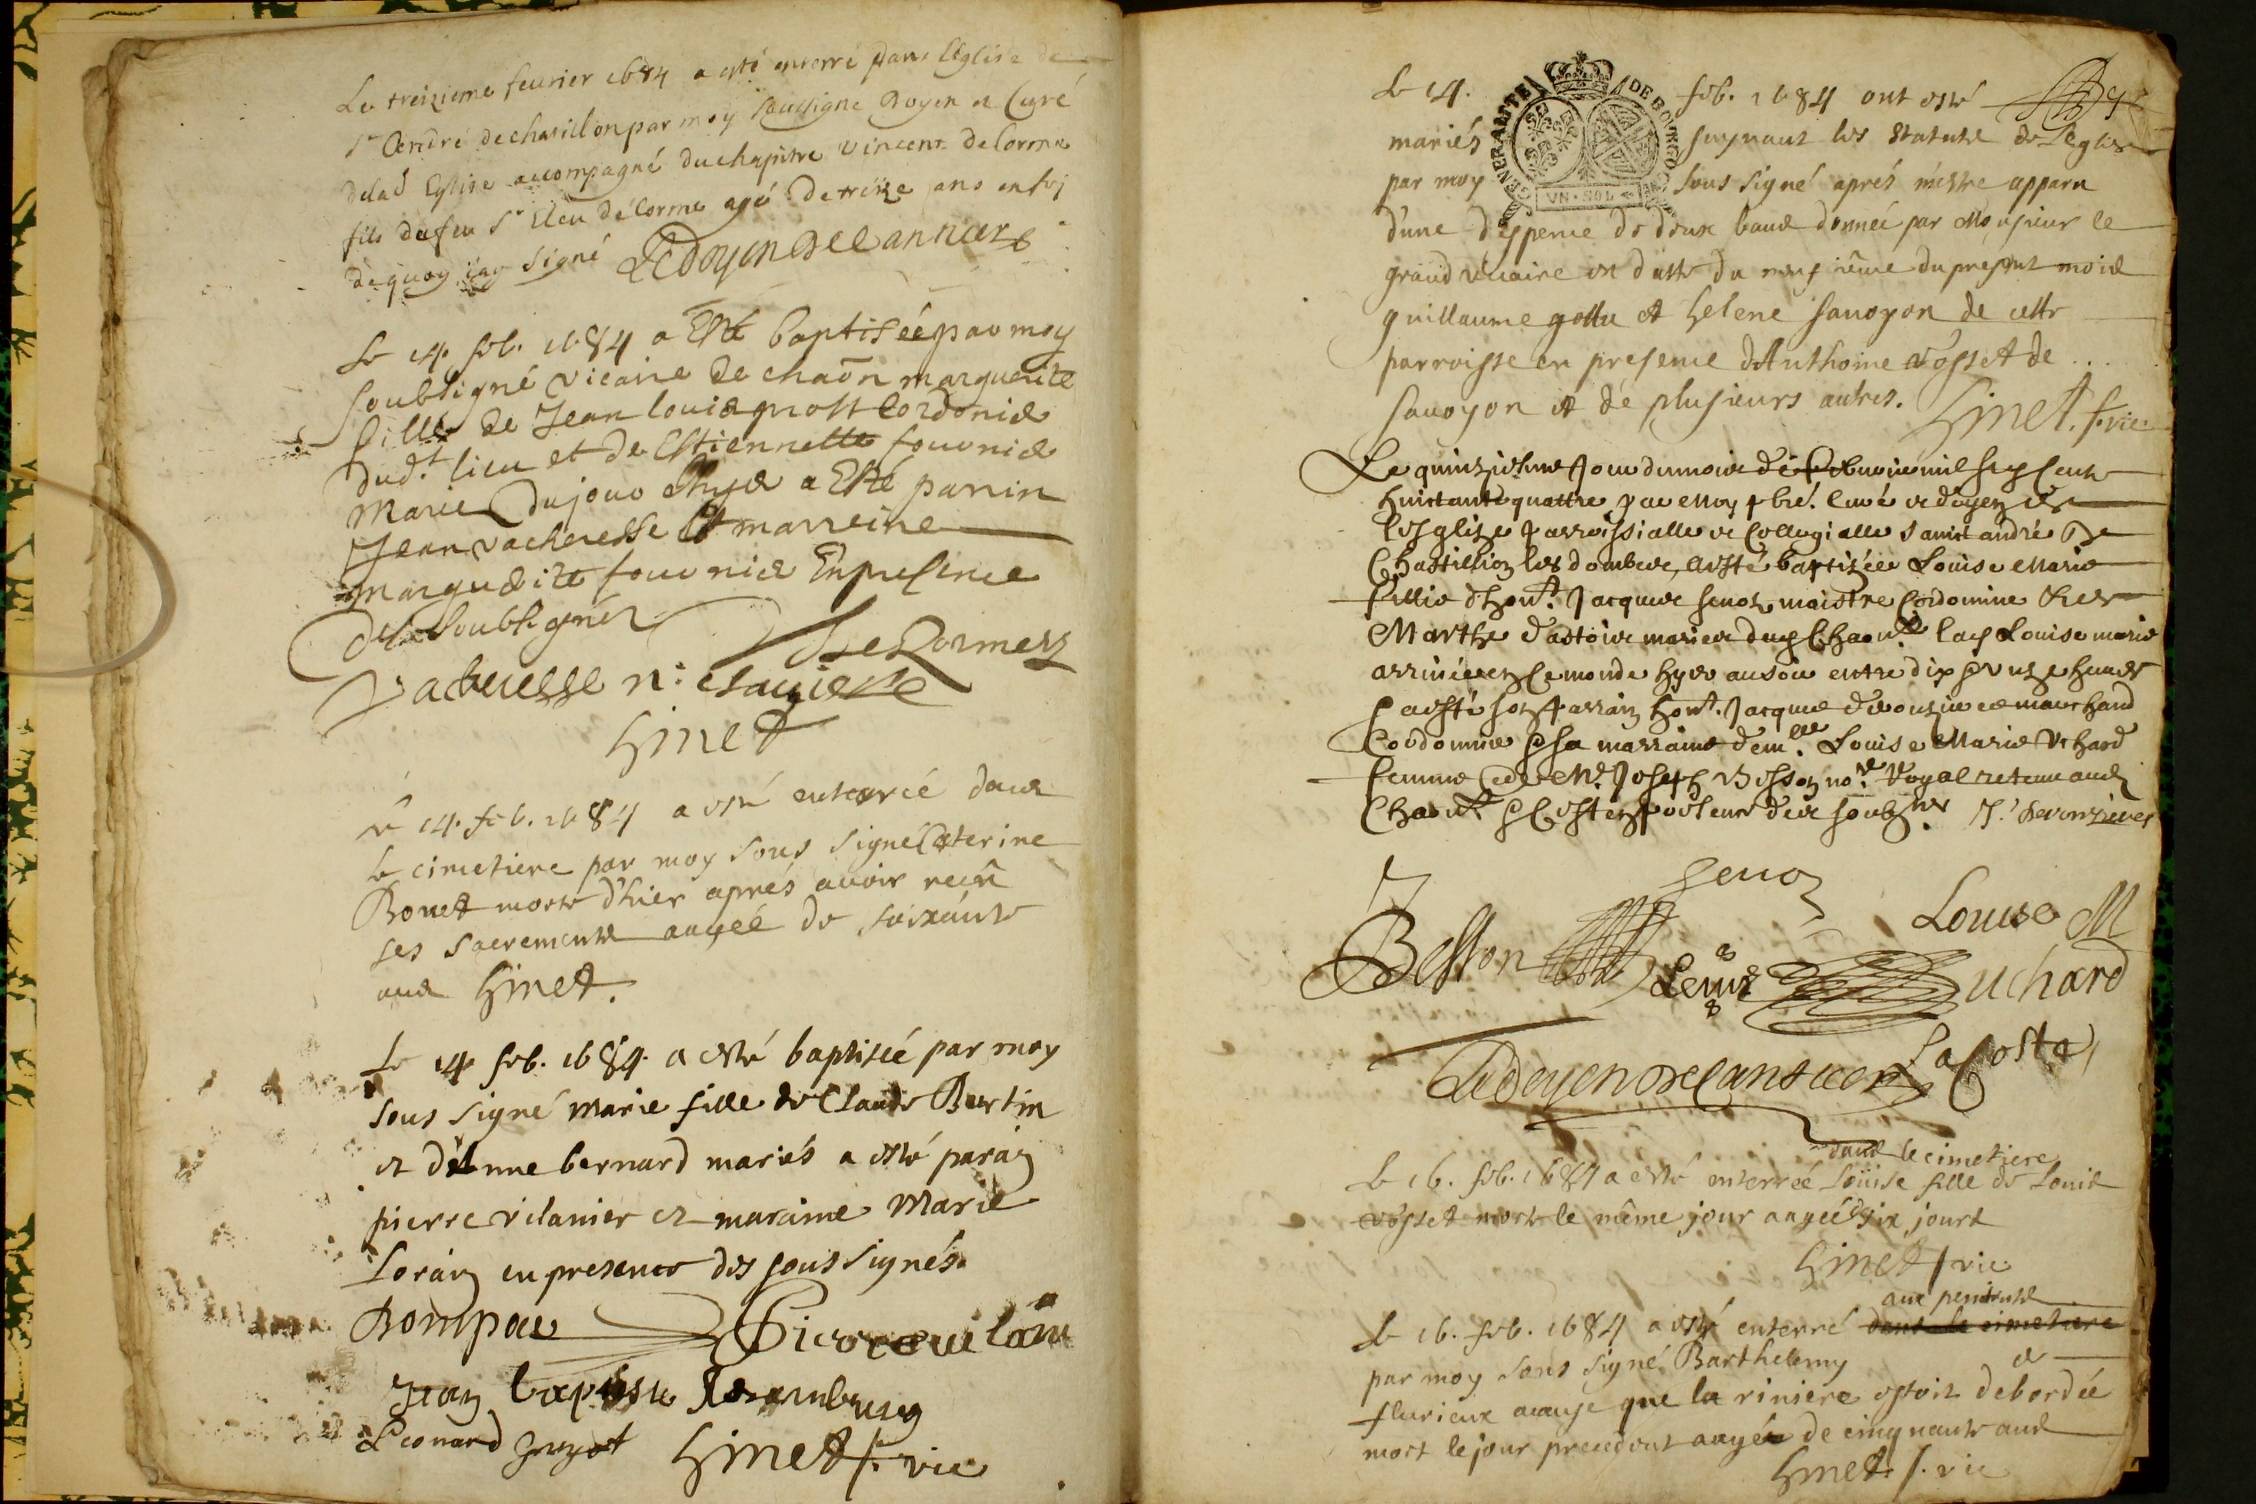 Le treizieme feurier 1684 a esté enterré dans l'Eglise de
St André de chatillon par moy soussigné Doyen et Curé
de lad Eglise accompagné du chapitre Vincent Delorme
fils du feu Sr Eleu Delorme agé de treize ans en foj
de quoy j'ay signé Ledoyen Delannier
Le 14. feb. 1684 a Esté baptisée par moy
soubsigné vicaire de chaõn marguerite
fille de Jean louis grost Cordonié
dud.t lieu et de Estiennette founié
Mariés Du jour d'hyer a Esté parrin
Jean vacheresse Et marreine
marguerite founié En presence
des soubsignés
Vacheresse
hinet
le 14. feb. 1684 a esté enterrée dans
le cimetiere par moy sous signé Caterine
Bonet morte d'hier aprés avoir receu
ses sacrements aagée de soixante
ans hinet.
Le 14 feb. 1684. a esté baptisée par moy
sous signé marie fille de Claude Bertin
et d'Anne bernard mariés a esté parain
pierre vilanier et maraine Marie
Lorain en presence des sous signés
Bompar
Jean baptiste
Leonard guyot hinet f. vic
Le 14. feb. 1684 ont esté
GENERALITE DE BOURGOGNE
VN·SOL
mariés suyvant les statuts de l'eglise
par moy sous signé aprés m'estre apparu
d'une dispence de deux bans donnée par Monsieur le
grand vicaire en datte du neufiême du present mois
guillaume gollu et helene savoyon de cette
parroisse en presence d'Anthoine vosset de
savoyon et de plusieurs autres. hinet. f. vic.
Le quinziesme Jour du mois de Febvrier mil six cents
huictante quattre par moy pbre. curé et doyen de
l'esglize parroissialle et Collegialle sainct andré de
Chastillion les dombes, a esté baptizée Louise Marie
fillie d'hont. Jacques Jenon maistre Cordonnier et de
Marthe mariés dud Chaon lad Louise marie
arrivée en ce monde hyer au soir entre dix et unze heures
a esté son parrain hont. Jacques marchand
Cordonnier et sa marraine demlle Louise Marie Vchard
femme de Me Joseph Besson nore Royal
Chaon
Jenon
Besson Louise M
Vchard
Ledoyen Delannier Lacoste
dans le cimetiere
Le 16. feb. 1684 a esté enterrée Louise fille de Louis
vosset morte le même jour aagée six jours
hinet f. vic
aux penitents
Le 16. feb. 1684 a esté enterré dans le cimetiere
par moy sous signé Barthelemy de
flurieux acause que la riviere estoit debordée
mort le jour precedent aagée de cinquante ans
hinet. f. vic